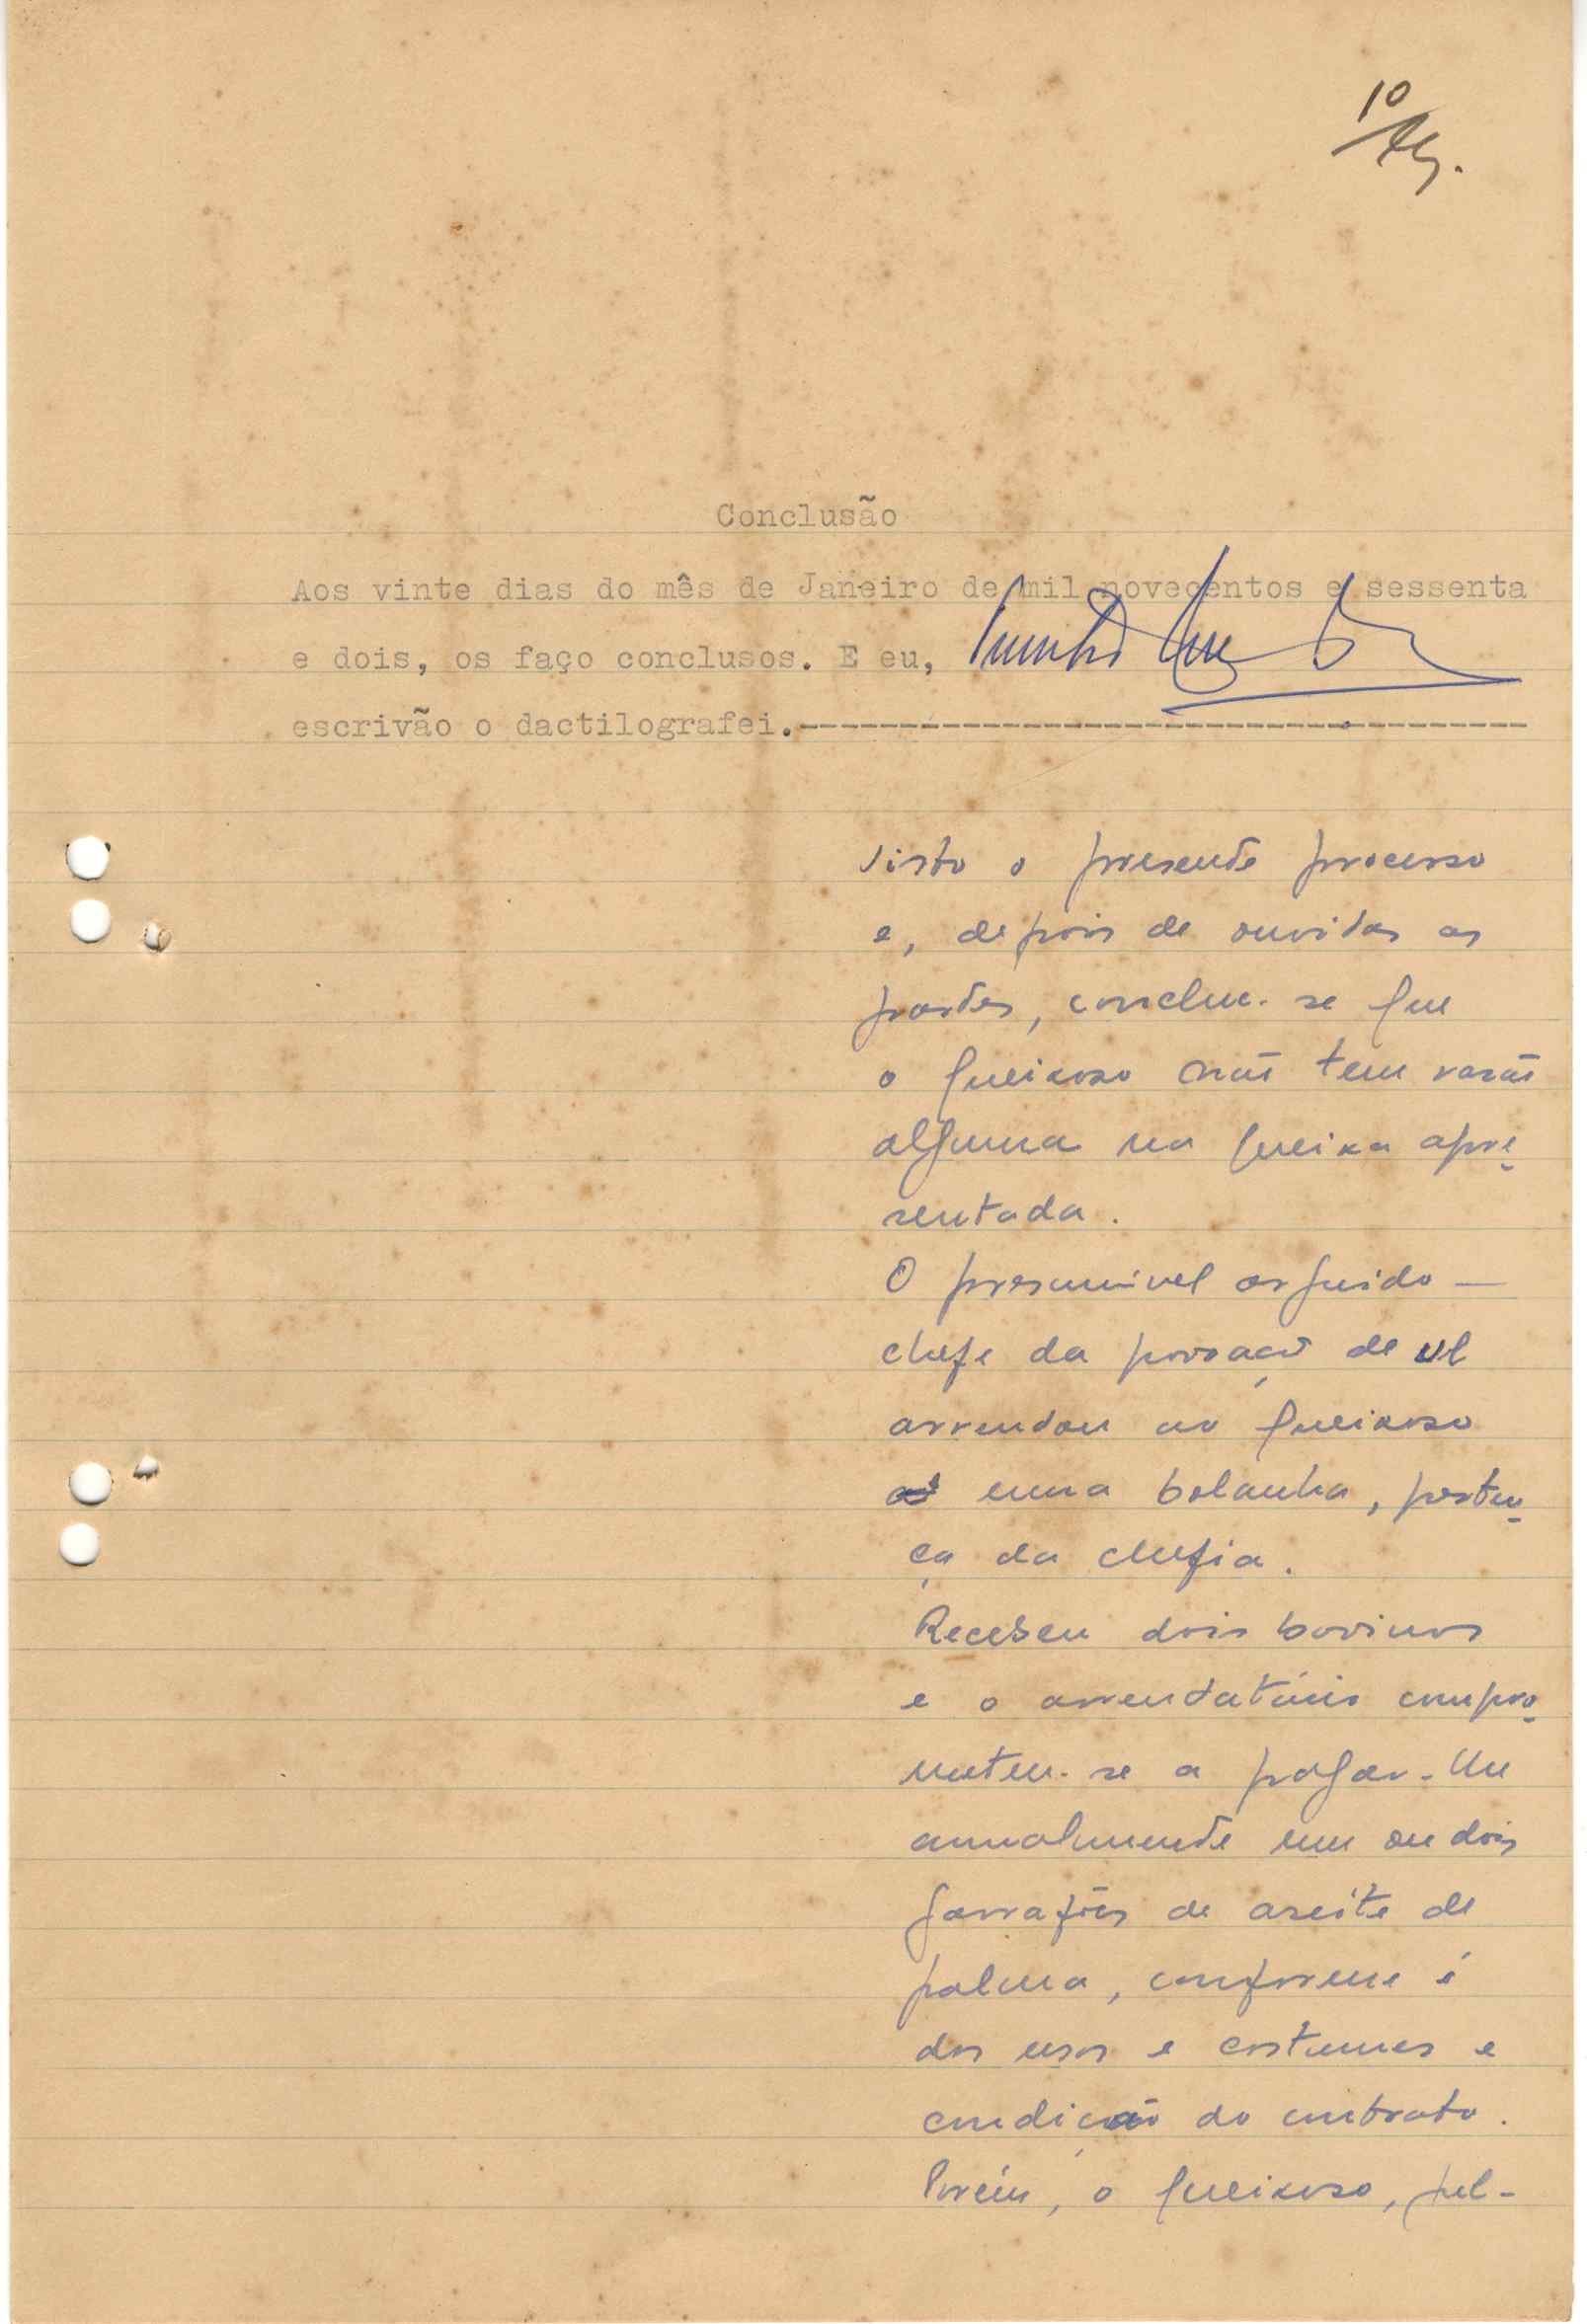 10
Conclusão
Aos vinte dias do mês de Janeiro de mil novecentos e sessenta
e dois, os faço conclusos. E eu,
escrivão o dactilografei.------------------------------------
Visto o presente processo
e, depois de ouvidas as
partes, conclue-se que
o queixoso não tem razão
alguma na queixa apre-
sentada.
O presumível arguido —
chefe da povoação de
arrendou ao queixoso
uma bolanha, perten-
ça da chefia.
Recebeu dois bovinos
e o arrendatário compro-
meteu-se a pagar-lhe
anualmente um ou dois
garrafões de azeite de
palma, conforme é
dos usos e costumes e
condição do contrato.
Porém, o queixoso, jul-